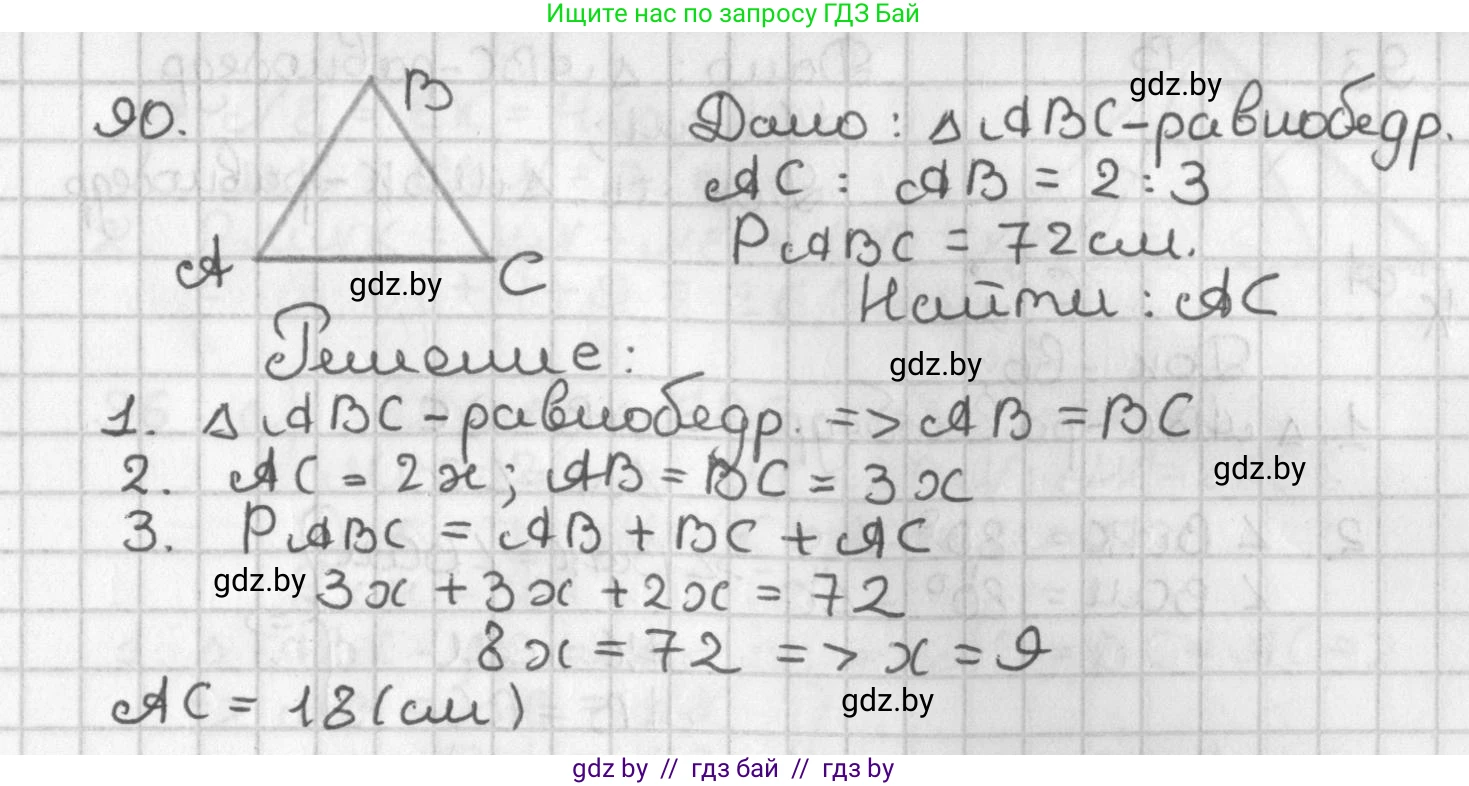 Ищите нас по запросу ГДЗ Бай
90.
B
A
C
gdz.by
Дано: Δ ABC - равнобедр.
gdz.by
AC : AB = 2 : 3
P ABC = 72 см.
Найти: AC
Решение:
gdz.by
1. Δ ABC - равнобедр. => AB = BC
2. AC = 2x; AB = BC = 3x
gdz.by
3. P ABC = AB + BC + AC
gdz.by
3x + 3x + 2x = 72
8x = 72 => x = 9
AC = 18 (см)
gdz.by
gdz by // гдз бай // гдз by